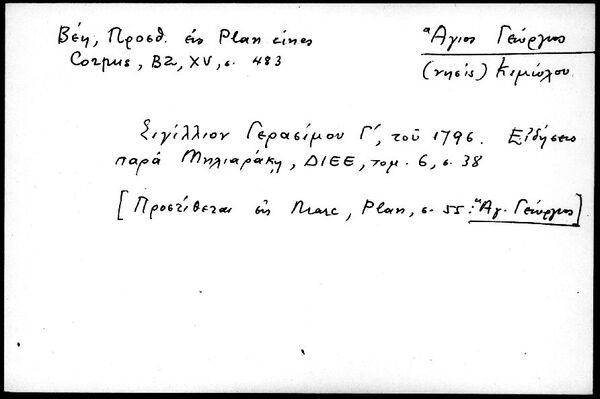 Βέη, Προσθ. εἰς Plan eines
Corpus, BZ, XV, σ. 483
Ἅγιος Γεώργιος
(νησὶς) Κιμώλου
Σιγίλλιον Γερασίμου Γ΄, τοῦ 1796. Εἰδήσεις
παρὰ Μηλιαράκῃ, ΔΙΕΕ, τομ. 6, σ. 38
[Προστίθεται εἰς Marc, Plan, σ. 55: Ἅγ. Γεώργιος]